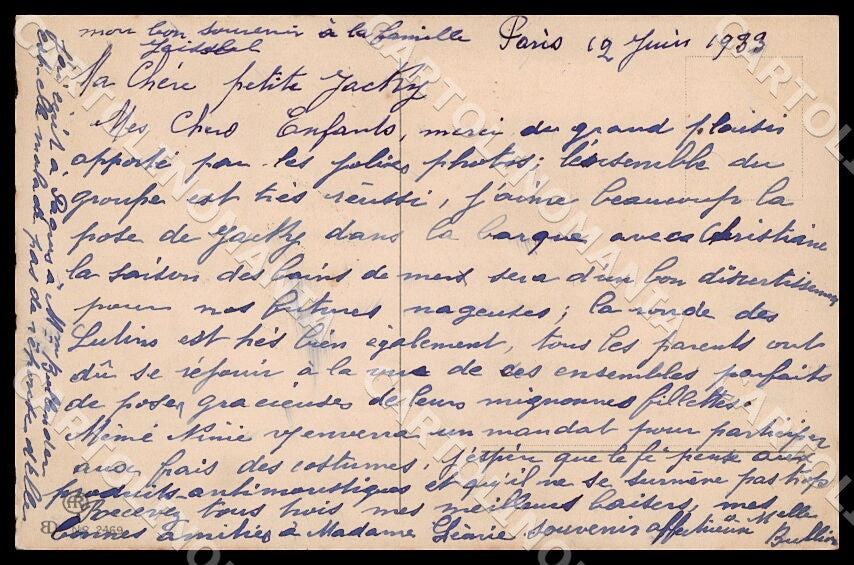 mon bon souvenir à la famille
Paris 12 Juin 1933
Ma Chère petite Jacky
Mes Chers Enfants, merci du grand plaisir
apporté par les jolies photos; l'ensemble du
groupe est très réussi, j'aime beaucoup la
pose de Jacky dans la barque avec Christiane
la saison des bains de mers sera d'un bon divertissement
pour nos futures nageuses; la ronde des
Lutins est très bien également, tous les parents ont
dû se réjouir à la vue de ces ensembles parfaits
de poses gracieuses de leurs mignonnes fillettes.
Mémé Ninie vs enverra un mandat pour participer
aux frais des costumes, j'espère que le
produits antimoustiques et qu'il ne se surmène pas trop
recevez tous trois mes meilleurs baisers, mes
bonnes amitiés à Madame Léonie souvenir affectueux à Melle
J'ai écrit à à Mme
est-elle malade pas de réponse d'elle
No 2469
CARTOLINOMANIA